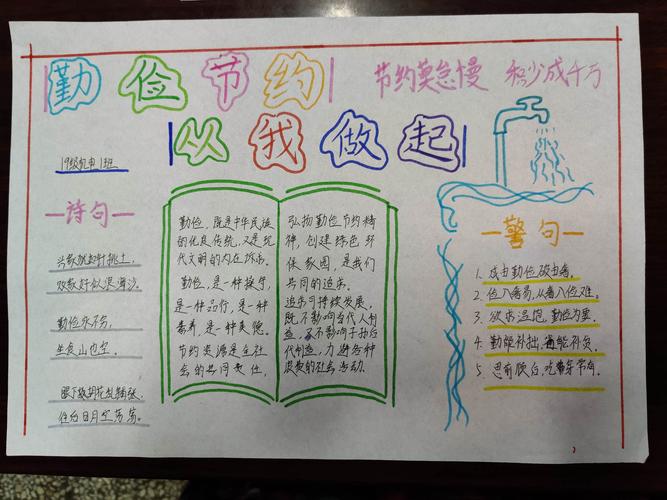 勤俭节约
节约莫怠慢 积少成千万
从我做起
19级机电1班
诗句
兴家犹如针挑土,
败家好似浪淘沙。
勤俭永不穷,
坐食山也空。
眼下胡花乱
往后日月空荡荡。
勤俭,既是中华民族
的优良传统,又是现
代文明的内在
勤俭,是一种操守,
是一种品行,是一种
素养,是一种美德。
节约资源是全社
会的共同责任
弘扬勤俭节约精
神,创建绿色环
保家园,是我们
共同的追求。
追求可持续发展,
既不影响当代人制
造,又不影响子孙后
代制造,力避各种
浪费的社会活动。
警句
1. 成由勤俭破由奢。
2. 俭入奢易,从奢入俭难。
3. 欲求温饱,勤俭为要。
4. 勤能补拙,俭能补贫。
5. 思前顾后,吃穿常节有。